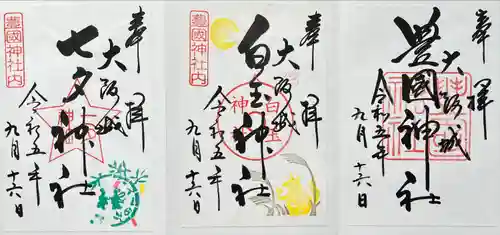 豊國神社内
奉拝
大阪城
七夕神社
令和五年
九月十六日
豊國神社内
奉拝
大阪城
白玉神社
白玉神社
令和五年
九月十六日
奉拝
大阪城
豊國神社
令和五年
九月十六日